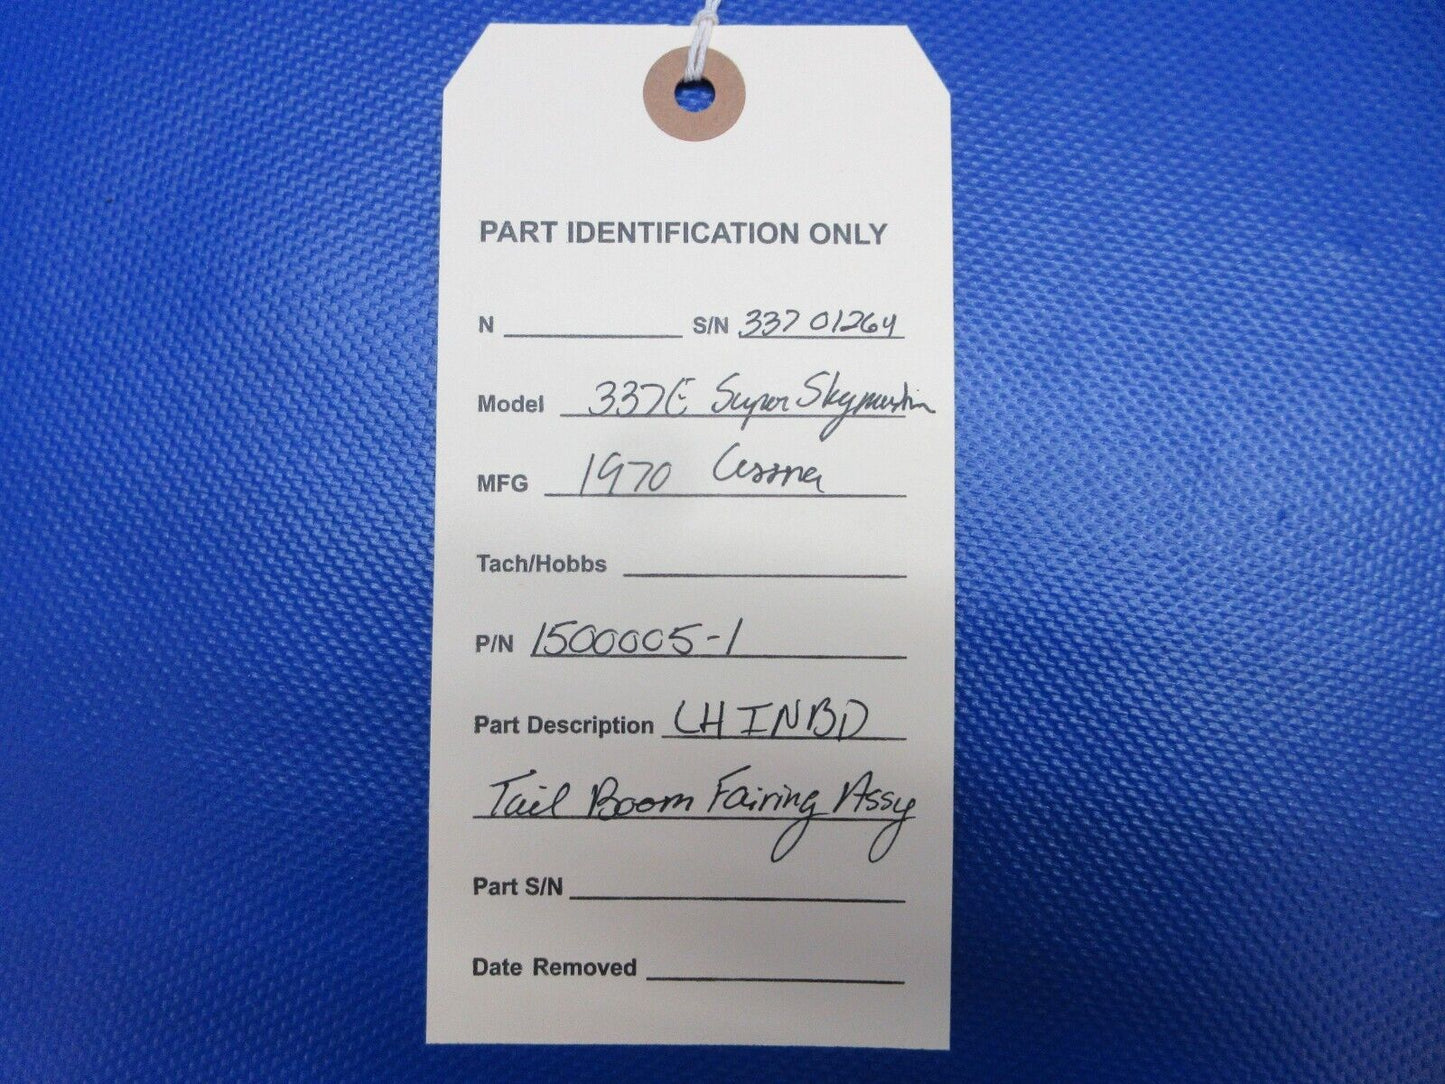 PART IDENTIFICATION ONLY
N S/N 337 01264
Model 337E Super Skymaster
MFG 1970 Cessna
Tach/Hobbs
P/N 1500005-1
Part Description LH INBD
Tail Boom Fairing Assy
Part S/N
Date Removed